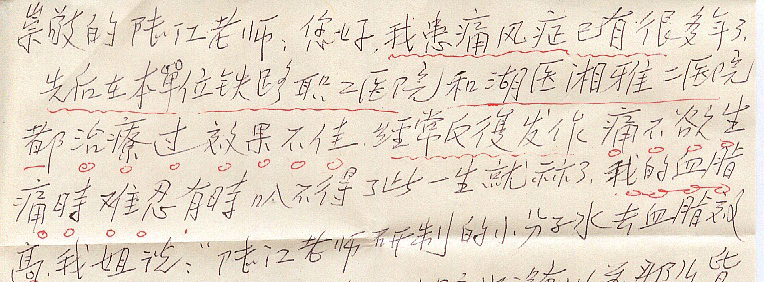 崇敬的陆江老师：您好，我患痛风症已有很多年了，
先后在本單位铁路职工医院和湖医湘雅二医院
都治療过效果不佳，經常反復发作痛不欲生
痛時难忍有時叭不得了此一生就算了，我的血脂
高，我姐说："陆江老师研制的小分子水去血脂效